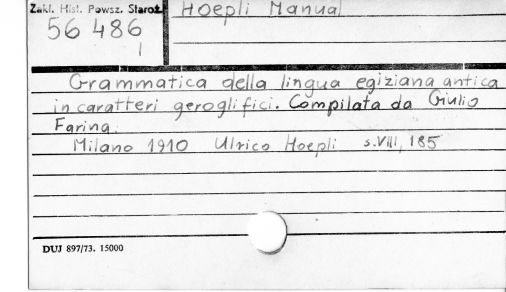 Zakl. Hist. Powsz. Staroż.
Hoepli Manual
56 486
1
Grammatica della lingua egiziana antica
in caratteri geroglifici. Compilata da Giulio
Farina.
Milano 1910 Ulrico Hoepli s. VIII, 185
DUJ 897/73. 15000